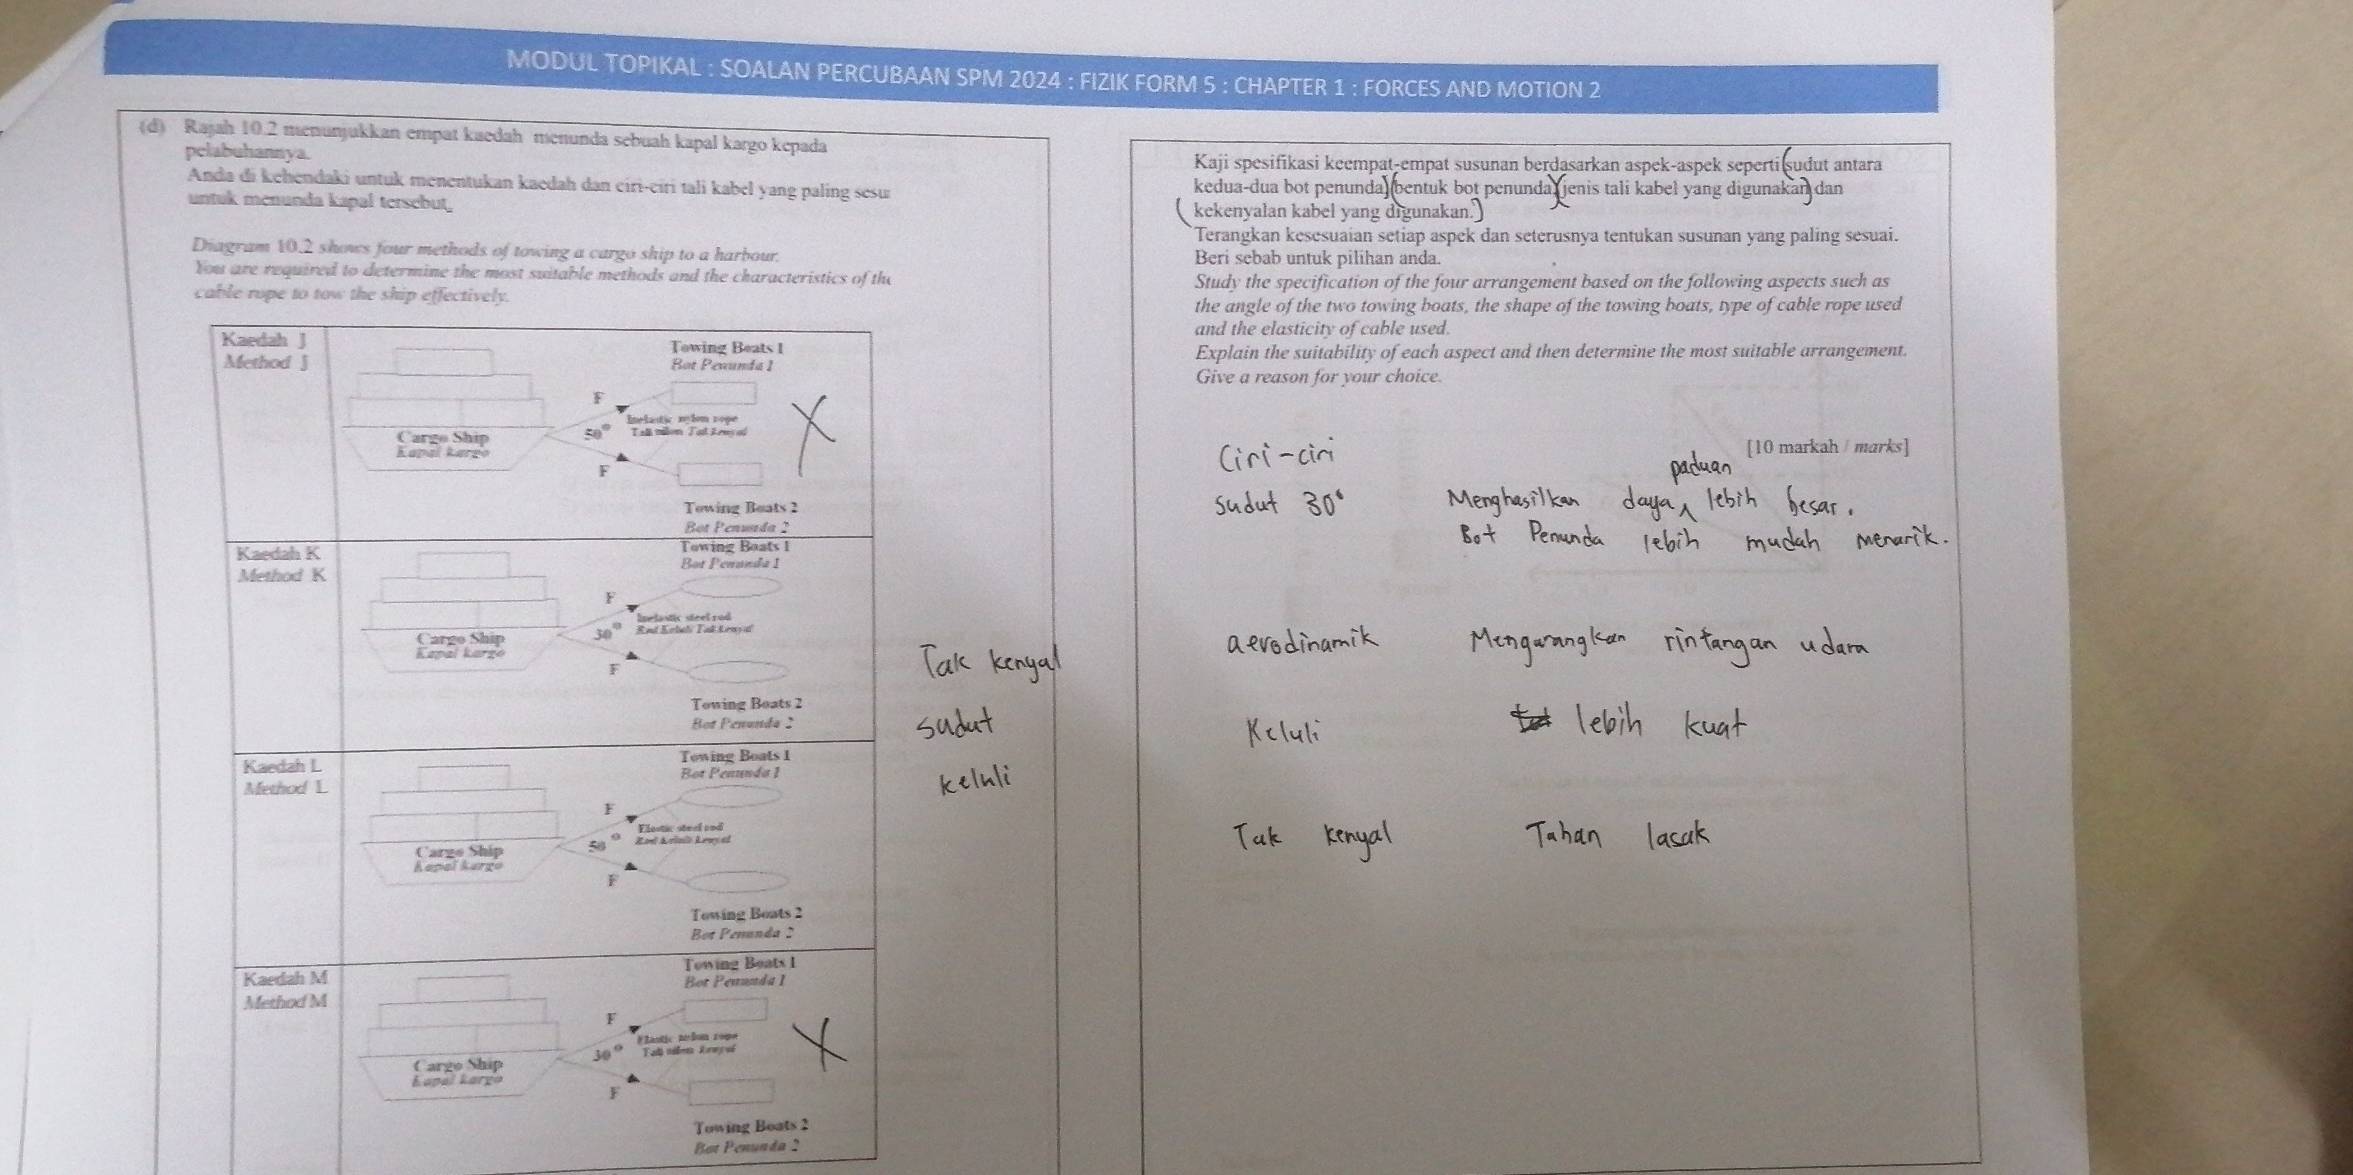 MODUL TOPIKAL : SOALAN PERCUBAAN SPM 2024 : FIZIK FORM 5 : CHAPTER 1 : FORCES AND MOTION 2
(d) Rajah 10.2 menunjukkan empat kaedah menunda sebuah kapal kargo kepada
pelabuhannya.
Anda di kehendaki untuk menentukan kaedah dan ciri-ciri tali kabel yang paling sesu
untuk menunda kapal tersebut.
Diagram 10.2 shows four methods of towing a cargo ship to a harbour.
You are required to determine the most suitable methods and the characteristics of the
cable rope to tow the ship effectively.
Kaedah J
Method J
Towing Boats 1
Bot Penunda 1
F
Inelastic nylon rope
50° Tali nilon Tak kenyal
Cargo Ship
Kapal kargo
F
Towing Boats 2
Bot Penunda 2
Kaedah K
Method K
Towing Boats 1
Bot Penunda 1
F
Inelastic steel rod
30° Rod Keluli Tak kenyal
Cargo Ship
Kapal kargo
F
Towing Boats 2
Bot Penunda 2
Kaedah L
Method L
Towing Boats 1
Bot Penunda 1
F
Elastic steel rod
50° Rod keluli kenyal
Cargo Ship
Kapal kargo
F
Towing Boats 2
Bot Penunda 2
Kaedah M
Method M
Towing Boats 1
Bot Penunda 1
F
Elastic nylon rope
30° Tali nilon kenyal
Cargo Ship
Kapal kargo
F
Towing Boats 2
Bot Penunda 2
Tak kenyal
sudut
keluli
Kaji spesifikasi keempat-empat susunan berdasarkan aspek-aspek seperti (sudut antara
kedua-dua bot penunda) (bentuk bot penunda) (jenis tali kabel yang digunakan) dan
(kekenyalan kabel yang digunakan.)
Terangkan kesesuaian setiap aspek dan seterusnya tentukan susunan yang paling sesuai.
Beri sebab untuk pilihan anda.
Study the specification of the four arrangement based on the following aspects such as
the angle of the two towing boats, the shape of the towing boats, type of cable rope used
and the elasticity of cable used.
Explain the suitability of each aspect and then determine the most suitable arrangement.
Give a reason for your choice.
[10 markah / marks]
Ciri-ciri
sudut 30° Menghasilkan daya paduan lebih besar.
Bot Penunda lebih mudah menarik.
aerodinamik Mengurangkan rintangan udara
Keluli lebih kuat
Tak kenyal Tahan lasak